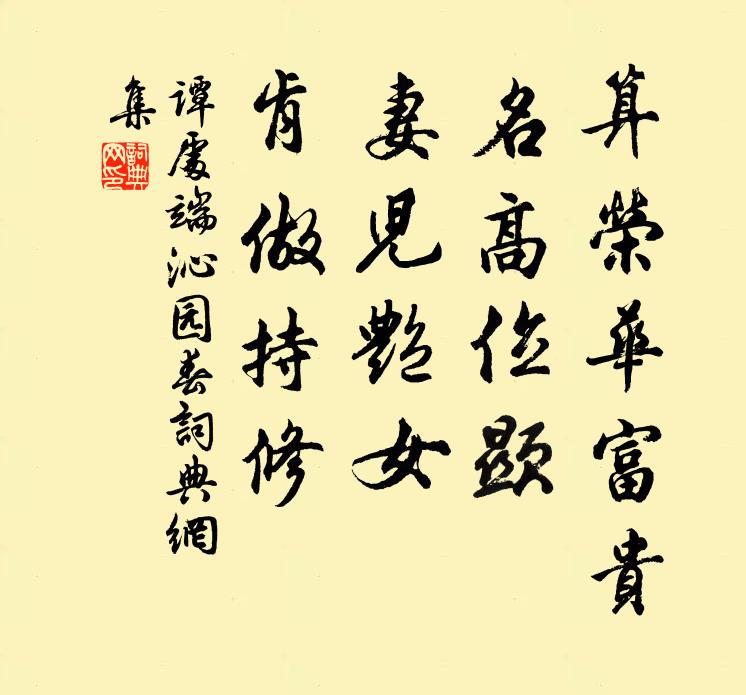 算榮華富貴
名高位顯
妻児艷女
肯做持修
譚處端沁园春詞典網
集
詞典网印